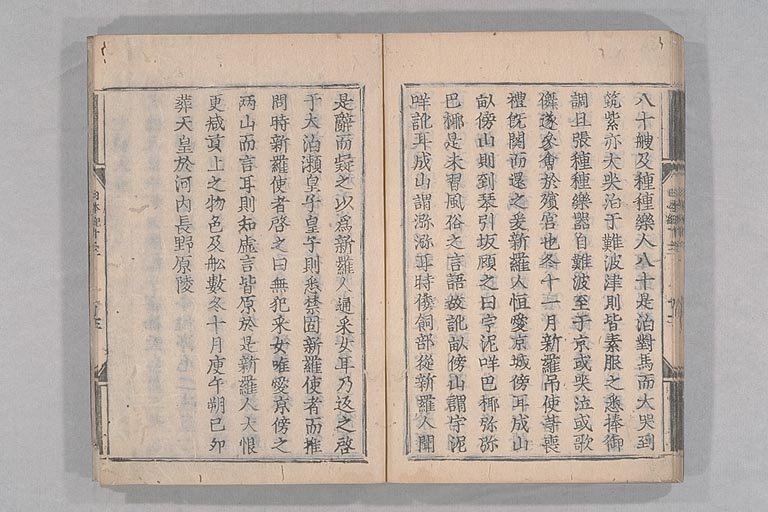 八十艘及種種樂人八十是泊對馬而大哭到
筑紫亦大哭泊于難波津則皆素服之悉捧御
調且張種種樂器自難波至于京或哭泣或歌
儛遂參會於殯宮也冬十一月新羅吊使等喪
禮既闋而還之爰新羅人恒愛京城傍耳成山
畝傍山則到琴引坂顧之曰宇泥咩巴椰弥弥
巴椰是未習風俗之言語故訛畝傍山謂宇泥
咩訛耳成山謂弥弥耳時倭飼部從新羅人聞
是辭而疑之以爲新羅人通采女耳乃返之啓
于大泊瀨皇子皇子則悉禁固新羅使者而推
問時新羅使者啓之曰無犯采女唯愛京傍之
兩山而言耳則知虛言皆原於是新羅人大恨
更減貢上之物色及舩數冬十月庚午朔己夘
葬天皇於河內長野原陵